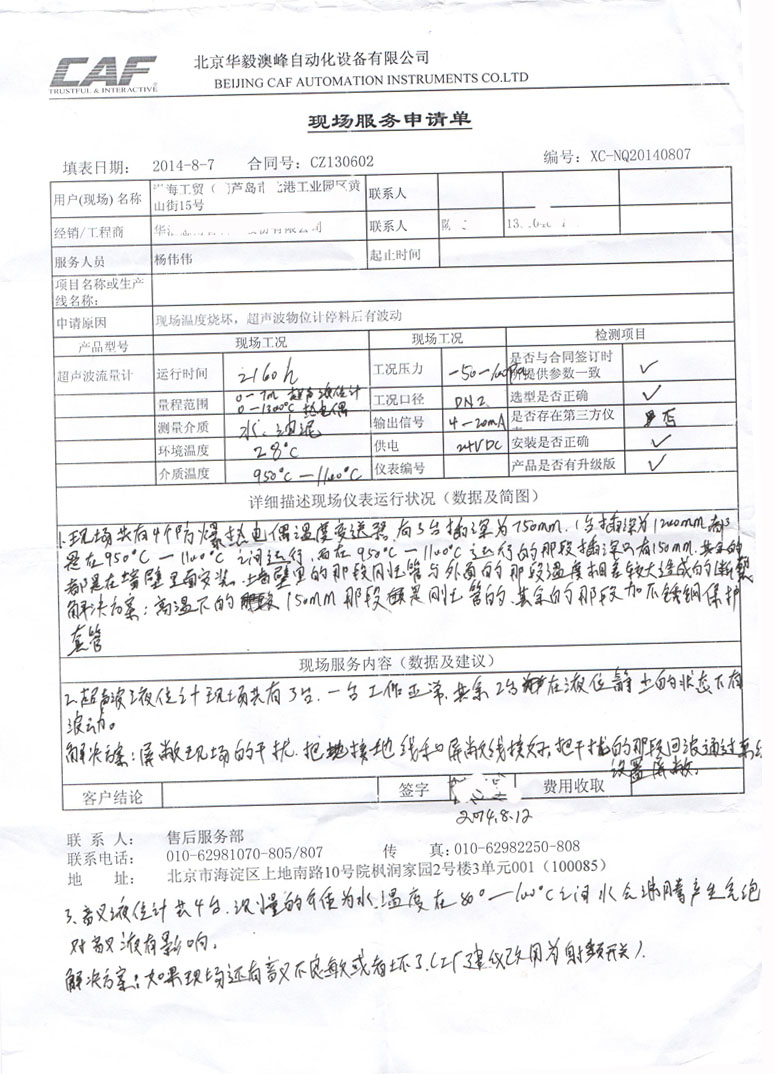 CAF
TRUSTFUL & INTERACTIVE
北京华毅澳峰自动化设备有限公司
BEIJING CAF AUTOMATION INSTRUMENTS CO.LTD
现场服务申请单
填表日期： 2014-8-7 合同号：CZ130602 编号：XC-NQ20140807
用户(现场)名称 海工贸（ 芦岛市 北港工业园区黄 联系人
山街15号
经销/工程商 联系人 陈
服务人员 杨伟伟 起止时间
项目名称或生产
线名称：
申请原因 现场温度烧坏，超声波物位计停料后有波动
产品型号 现场工况 现场工况 检测项目
超声波流量计 运行时间 2160h 工况压力 -50-100 是否与合同签订时所提供参数一致 ✓
量程范围 0-7m 超声液位计 0-1300℃ 热电偶 工况口径 DN2 选型是否正确 ✓
测量介质 水、油泥 输出信号 4-20mA 是否存在第三方仪 否
环境温度 28℃ 供电 24VDC 安装是否正确 ✓
介质温度 950℃-1100℃ 仪表编号 产品是否有升级版 ✓
详细描述现场仪表运行状况（数据及简图）
1.现场共有4个防爆热电偶温度变送器，有3台插深为750mm.1台插深为1200mm都
是在950℃-1100℃之间运行.而在950℃-1100℃运行的那段插深只有150mm.其余的
都是在墙壁里面安装.墙壁里的那段刚玉管与外面的那段温度相差较大造成的断裂
解决方案：高温下的 150mm那段 是刚玉管的.其余的那段加不锈钢保护
套管
现场服务内容（数据及建议）
2.超声波液位计现场共有3台.一台工作正常.其余2台 在液位静止的状态下有
波动。
解决方案：屏蔽现场的干扰.把地接地线和屏蔽线接好.把干扰的那段回波通过
设置屏蔽.
客户结论 签字 费用收取
2014.8.12
联 系 人： 售后服务部
联系电话： 010-62981070-805/807 传 真：010-62982250-808
地 址： 北京市海淀区上地南路10号院枫润家园2号楼3单元001（100085）
3.音叉液位计共4台.测量的介质为水.温度在80°-100℃之间水会沸腾产生气泡
对音叉液有影响.
解决方案：如果现场还有音叉不灵敏或者坏了.(工厂建议改用为射频开关).